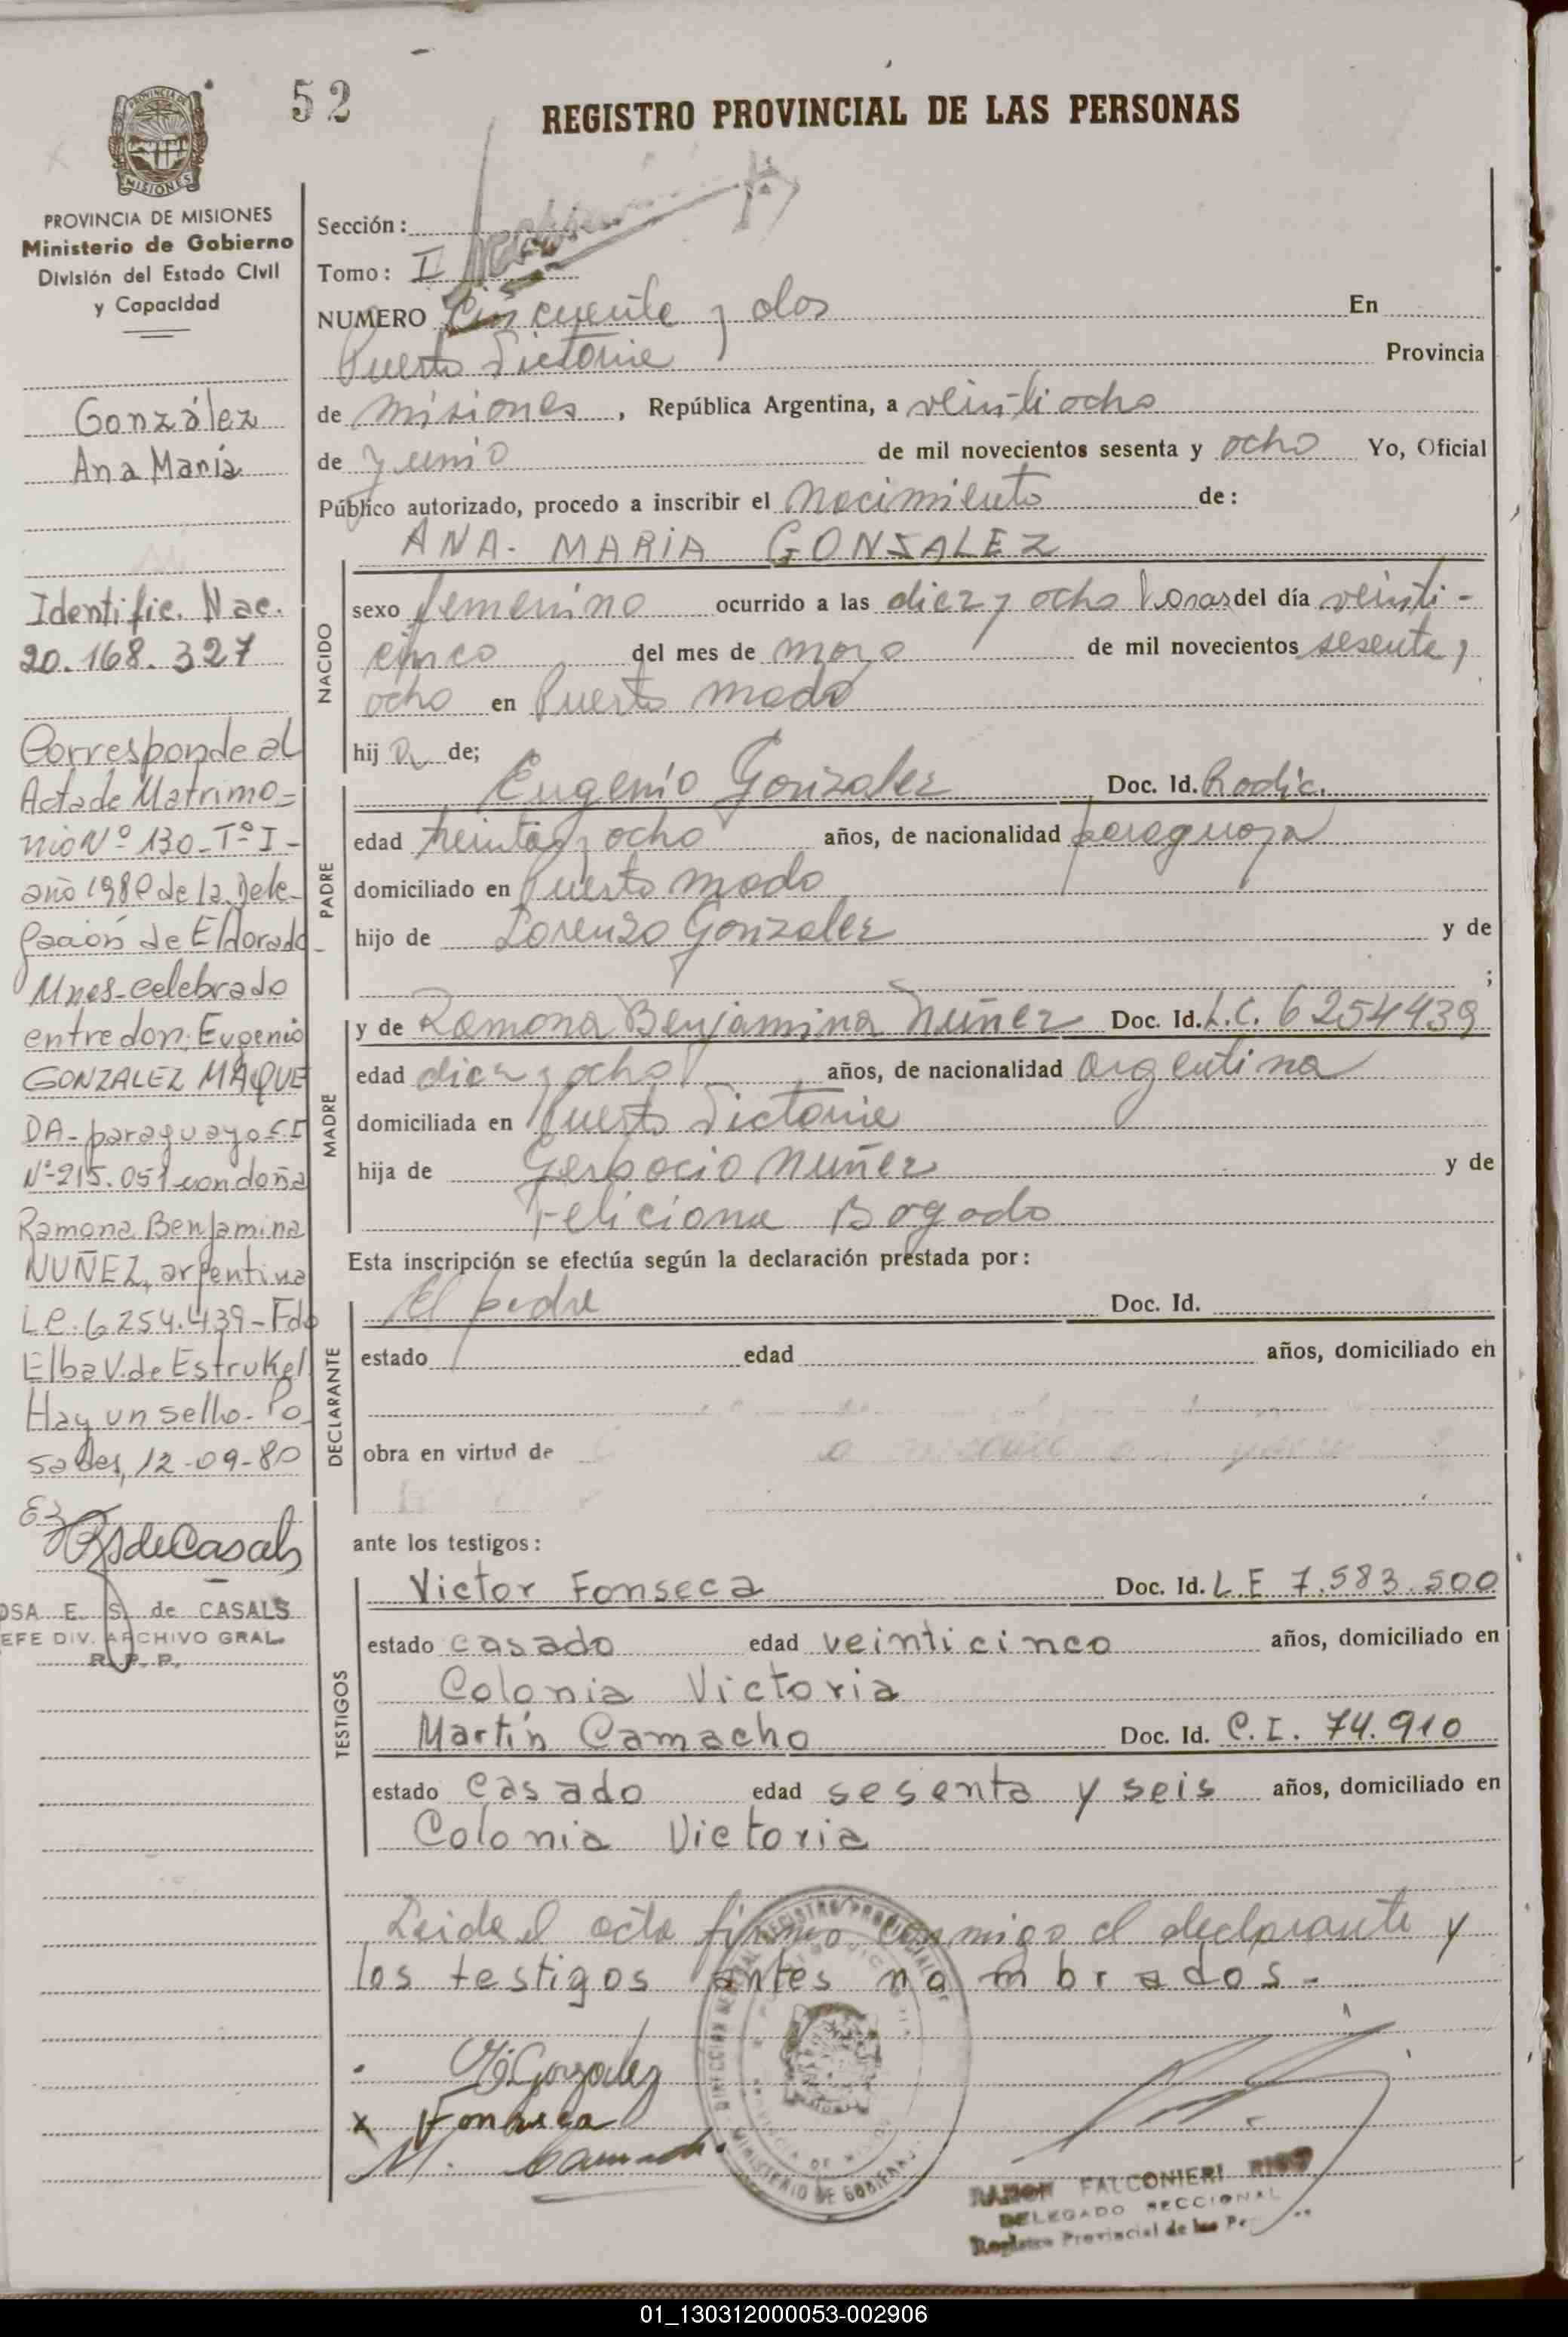 52
REGISTRO PROVINCIAL DE LAS PERSONAS
PROVINCIA DE MISIONES
Ministerio de Gobierno
División del Estado Civil
y Capacidad
González
Ana María
Identific. Nac.
20.168.327
Corresponde al
Acta de Matrimo=
nio Nº 130-Tº I-
año 1980 de la Dele-
gación de Eldorado-
Mnes-celebrado
entre don: Eugenio
GONZALEZ MAQUE
DA-paraguayo C.I
Nº-215.051 con doña
Ramona Benjamina
NUÑEZ, argentina
L.C. 6.254.439-Fdo
Elba V. de Estrukel
Hay un sello-Po
sadas, 12-09-80
RSdeCasals
OSA E. S. de CASALS
EFE DIV. ARCHIVO GRAL.
R. P. P.
Sección:
Tomo: I
NUMERO Cincuenta y dos En
Puerto Victoria Provincia
de misiones, República Argentina, a veintiocho
de Junio de mil novecientos sesenta y ocho Yo, Oficial
Público autorizado, procedo a inscribir el nacimiento de:
ANA-MARIA GONSALEZ
NACIDO
sexo femenino ocurrido a las diez y ocho horas del día veinti-
cinco del mes de mayo de mil novecientos sesenta y
ocho en Puerto mado
hij a de;
PADRE
Eugenio Gonzalez Doc. Id. Radic.
edad treinta y ocho años, de nacionalidad paraguaya
domiciliado en Puerto mado
hijo de Lorenzo Gonzalez y de
;
MADRE
y de Ramona Benjamina Nuñez Doc. Id. L.C. 6254439
edad diez y ocho años, de nacionalidad argentina
domiciliada en Puerto Victoria
hija de Gerbacio Nuñez y de
Feliciana Bogado
Esta inscripción se efectúa según la declaración prestada por:
DECLARANTE
El padre Doc. Id.
estado edad años, domiciliado en
obra en virtud de
ante los testigos:
TESTIGOS
Victor Fonseca Doc. Id. L.E 7.583.500
estado casado edad veinticinco años, domiciliado en
Colonia Victoria
Martín Camacho Doc. Id. C.I. 74.910
estado casado edad sesenta y seis años, domiciliado en
Colonia Victoria
Leida el acta firma conmigo el declarante y
los testigos antes nombrados-
Gonzalez
x Fonseca
M. Camach
DIRECCION GENERAL REGISTRO PROVINCIAL DE
MINISTERIO DE GOBIERNO
RAMON FALCONIERI
DELEGADO SECCIONAL
Registro Provincial de las
01_130312000053-002906